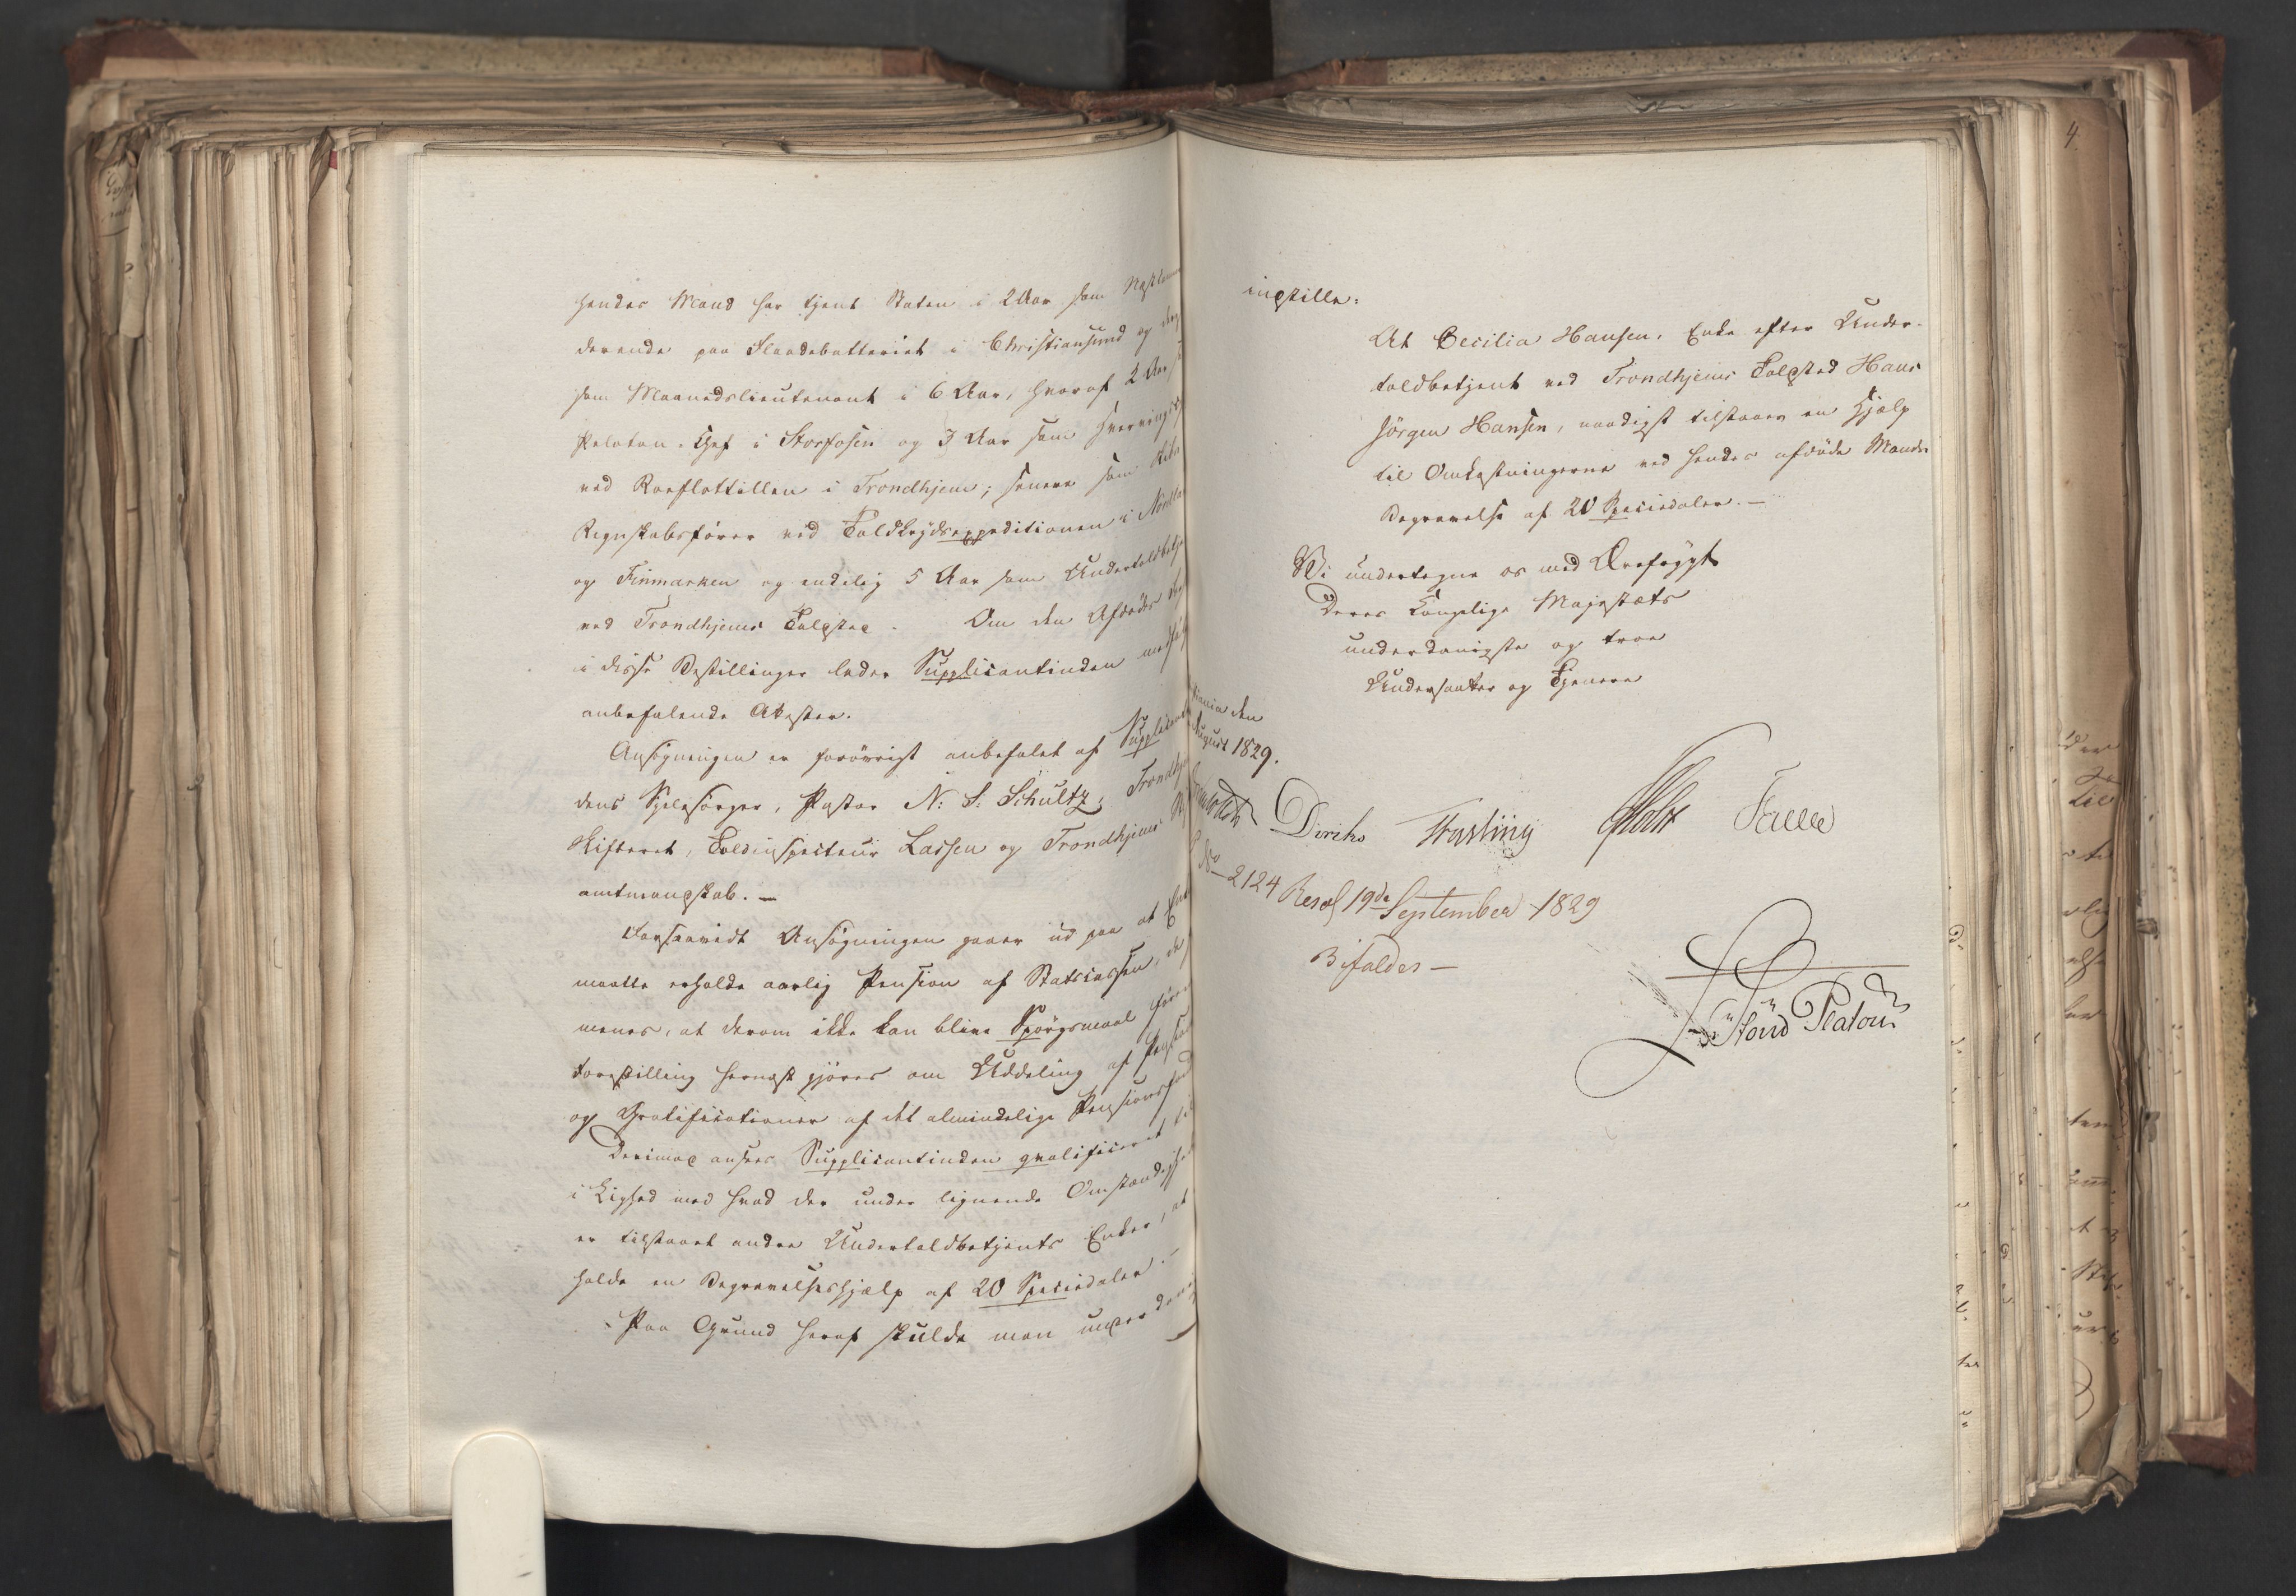 hendes Mand har tjent Staten i 2 Aar som Næstkomman
derende paa Flaadebatteriet i Christiansund og derp
som Maanedslieutenant i 6 Aar, hvoraf 2 Aar s
Peloton-Chef i Storfosen og 3 Aar som
ved Roeflottillen i Trondhjem; senere som
Regnskabsfører ved Toldkrydsexpeditionen i Nordla
og Finmarken og endelig 5 Aar som Undertoldbetje
ved Trondhjems Toldsted. Om den Afdødes
i disse Bestillinger lader Supplicantinden medfølg
anbefalende Atester.
Ansøgningen er forøvrigt anbefalet af Supplicant
dens Sjelesørger, Pastor N: S: Schultz, Trondhj
Skifteret, Toldinspecteur Lassen og Trondhjems St
amtmandskab. —
Forsaavidt Ansøgningen gaaer ud paa at Enk
maatte erholde aarlig Pension af Statscassen, da
menes, at derom ikke kan blive Spørgsmaal førend
Forestilling hernæst gjøres om Uddeling af Pensio
og Gratificationer af det almindelige Pensionsfond
Derimod ansees Supplicantinden qvalificeret til
i Lighed med hvad der under lignende Omstændighe
er tilstaaet andre Undertoldbetjents Enker, at
holde en Begravelseshjælp af 20 Speciedaler.
Paa Grund heraf skulde man underdani
indstille:
At Cecilia Hansen, Enke efter Under-
toldbetjent ved Trondhjems Toldsted Hans
Jørgen Hansen, naadigst tilstaaes en Hjælp
til Omkostningerne ved hendes afdøde Mands
Begravelse af 20 Speciedaler. —
Vi undertegne os med Ærefrygt
Deres Kongelige Majestæts
underdanigste og troe
Undersaatter og Tjenere
tiania den
August 1829.
Diriks Fasting Holst Falbe
No 2124 Resol 19de September 1829
Bifaldes —
Stoud Platou